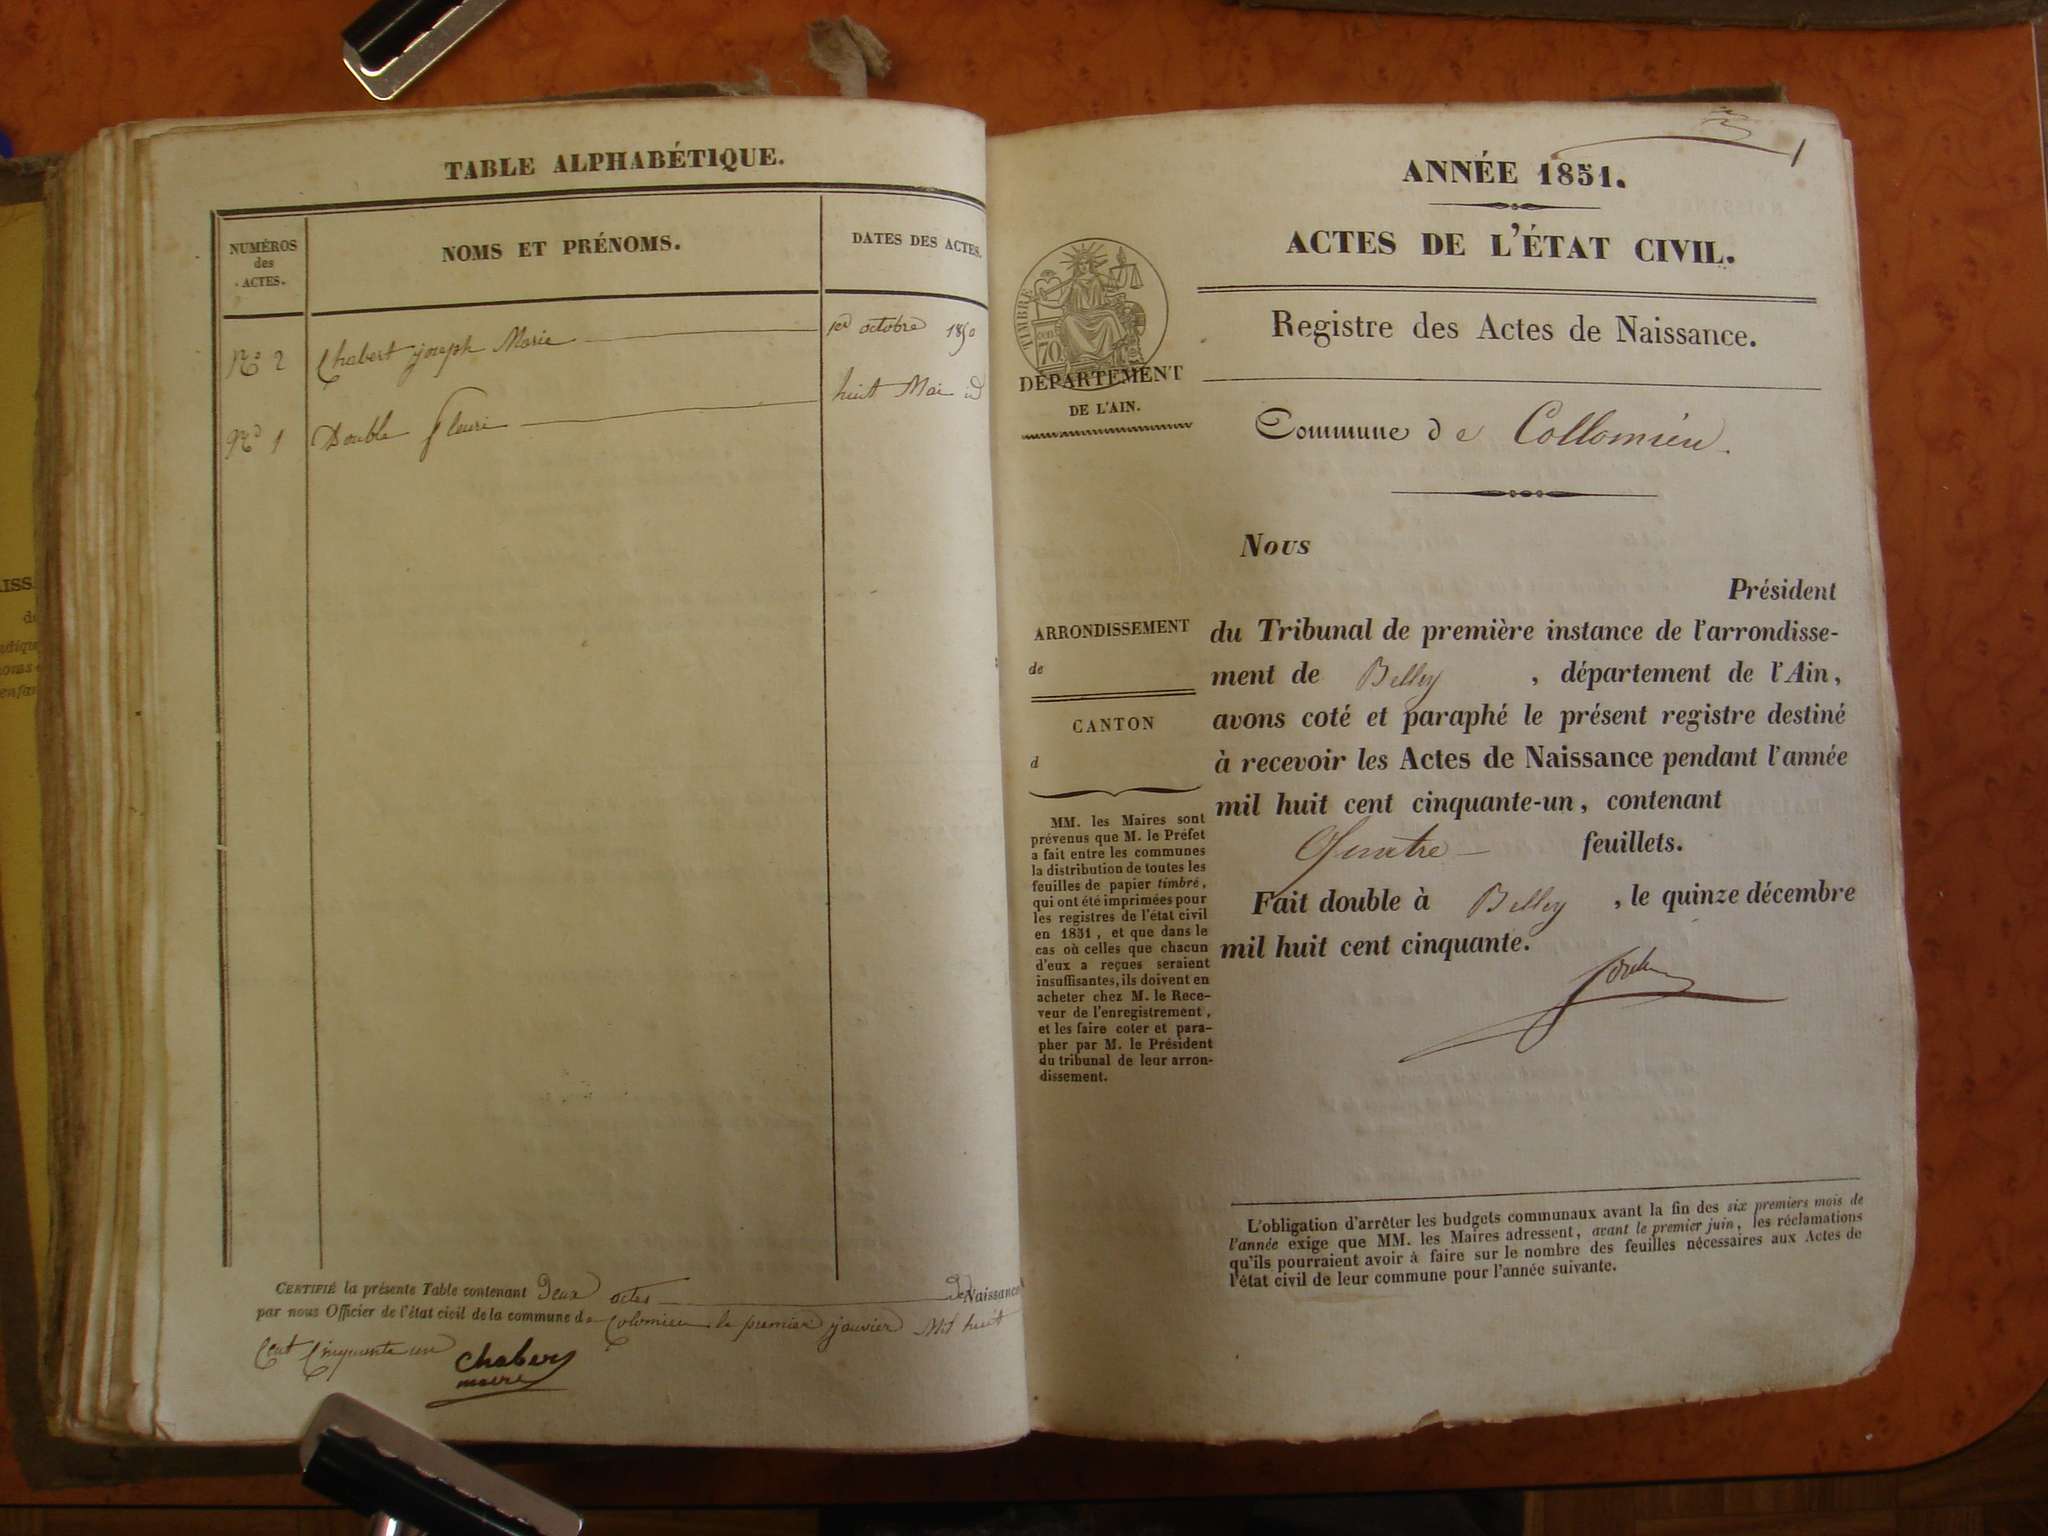 TABLE ALPHABÉTIQUE.
NUMÉROS
des
ACTES.
NOMS ET PRÉNOMS.
DATES DES ACTES.
No 2 Chabert joseph Marie 1er octobre 1850
No 1 Double fleuri huit Mai id
CERTIFIÉ la présente Table contenant Deux actes de Naissance
par nous Officier de l'état civil de la commune de Colomieu le premier janvier Mil huit
Cent Cinquante un
Chabert
maire
1
ANNÉE 1851.
ACTES DE L'ÉTAT CIVIL.
Registre des Actes de Naissance.
TIMBRE
70
DÉPARTEMENT
DE L'AIN.
Commune de Collomieu.
ARRONDISSEMENT
de
CANTON
d
MM. les Maires sont
prévenus que M. le Préfet
a fait entre les communes
la distribution de toutes les
feuilles de papier timbré,
qui ont été imprimées pour
les registres de l'état civil
en 1851, et que dans le
cas où celles que chacun
d'eux a reçues seraient
insuffisantes, ils doivent en
acheter chez M. le Rece-
veur de l'enregistrement,
et les faire coter et para-
pher par M. le Président
du tribunal de leur arron-
dissement.
Nous
Président
du Tribunal de première instance de l'arrondisse-
ment de Belley, département de l'Ain,
avons coté et paraphé le présent registre destiné
à recevoir les Actes de Naissance pendant l'année
mil huit cent cinquante-un, contenant
Quatre feuillets.
Fait double à Belley, le quinze décembre
mil huit cent cinquante.
L'obligation d'arrêter les budgets communaux avant la fin des six premiers mois de
l'année exige que MM. les Maires adressent, avant le premier juin, les réclamations
qu'ils pourraient avoir à faire sur le nombre des feuilles nécessaires aux Actes de
l'état civil de leur commune pour l'année suivante.